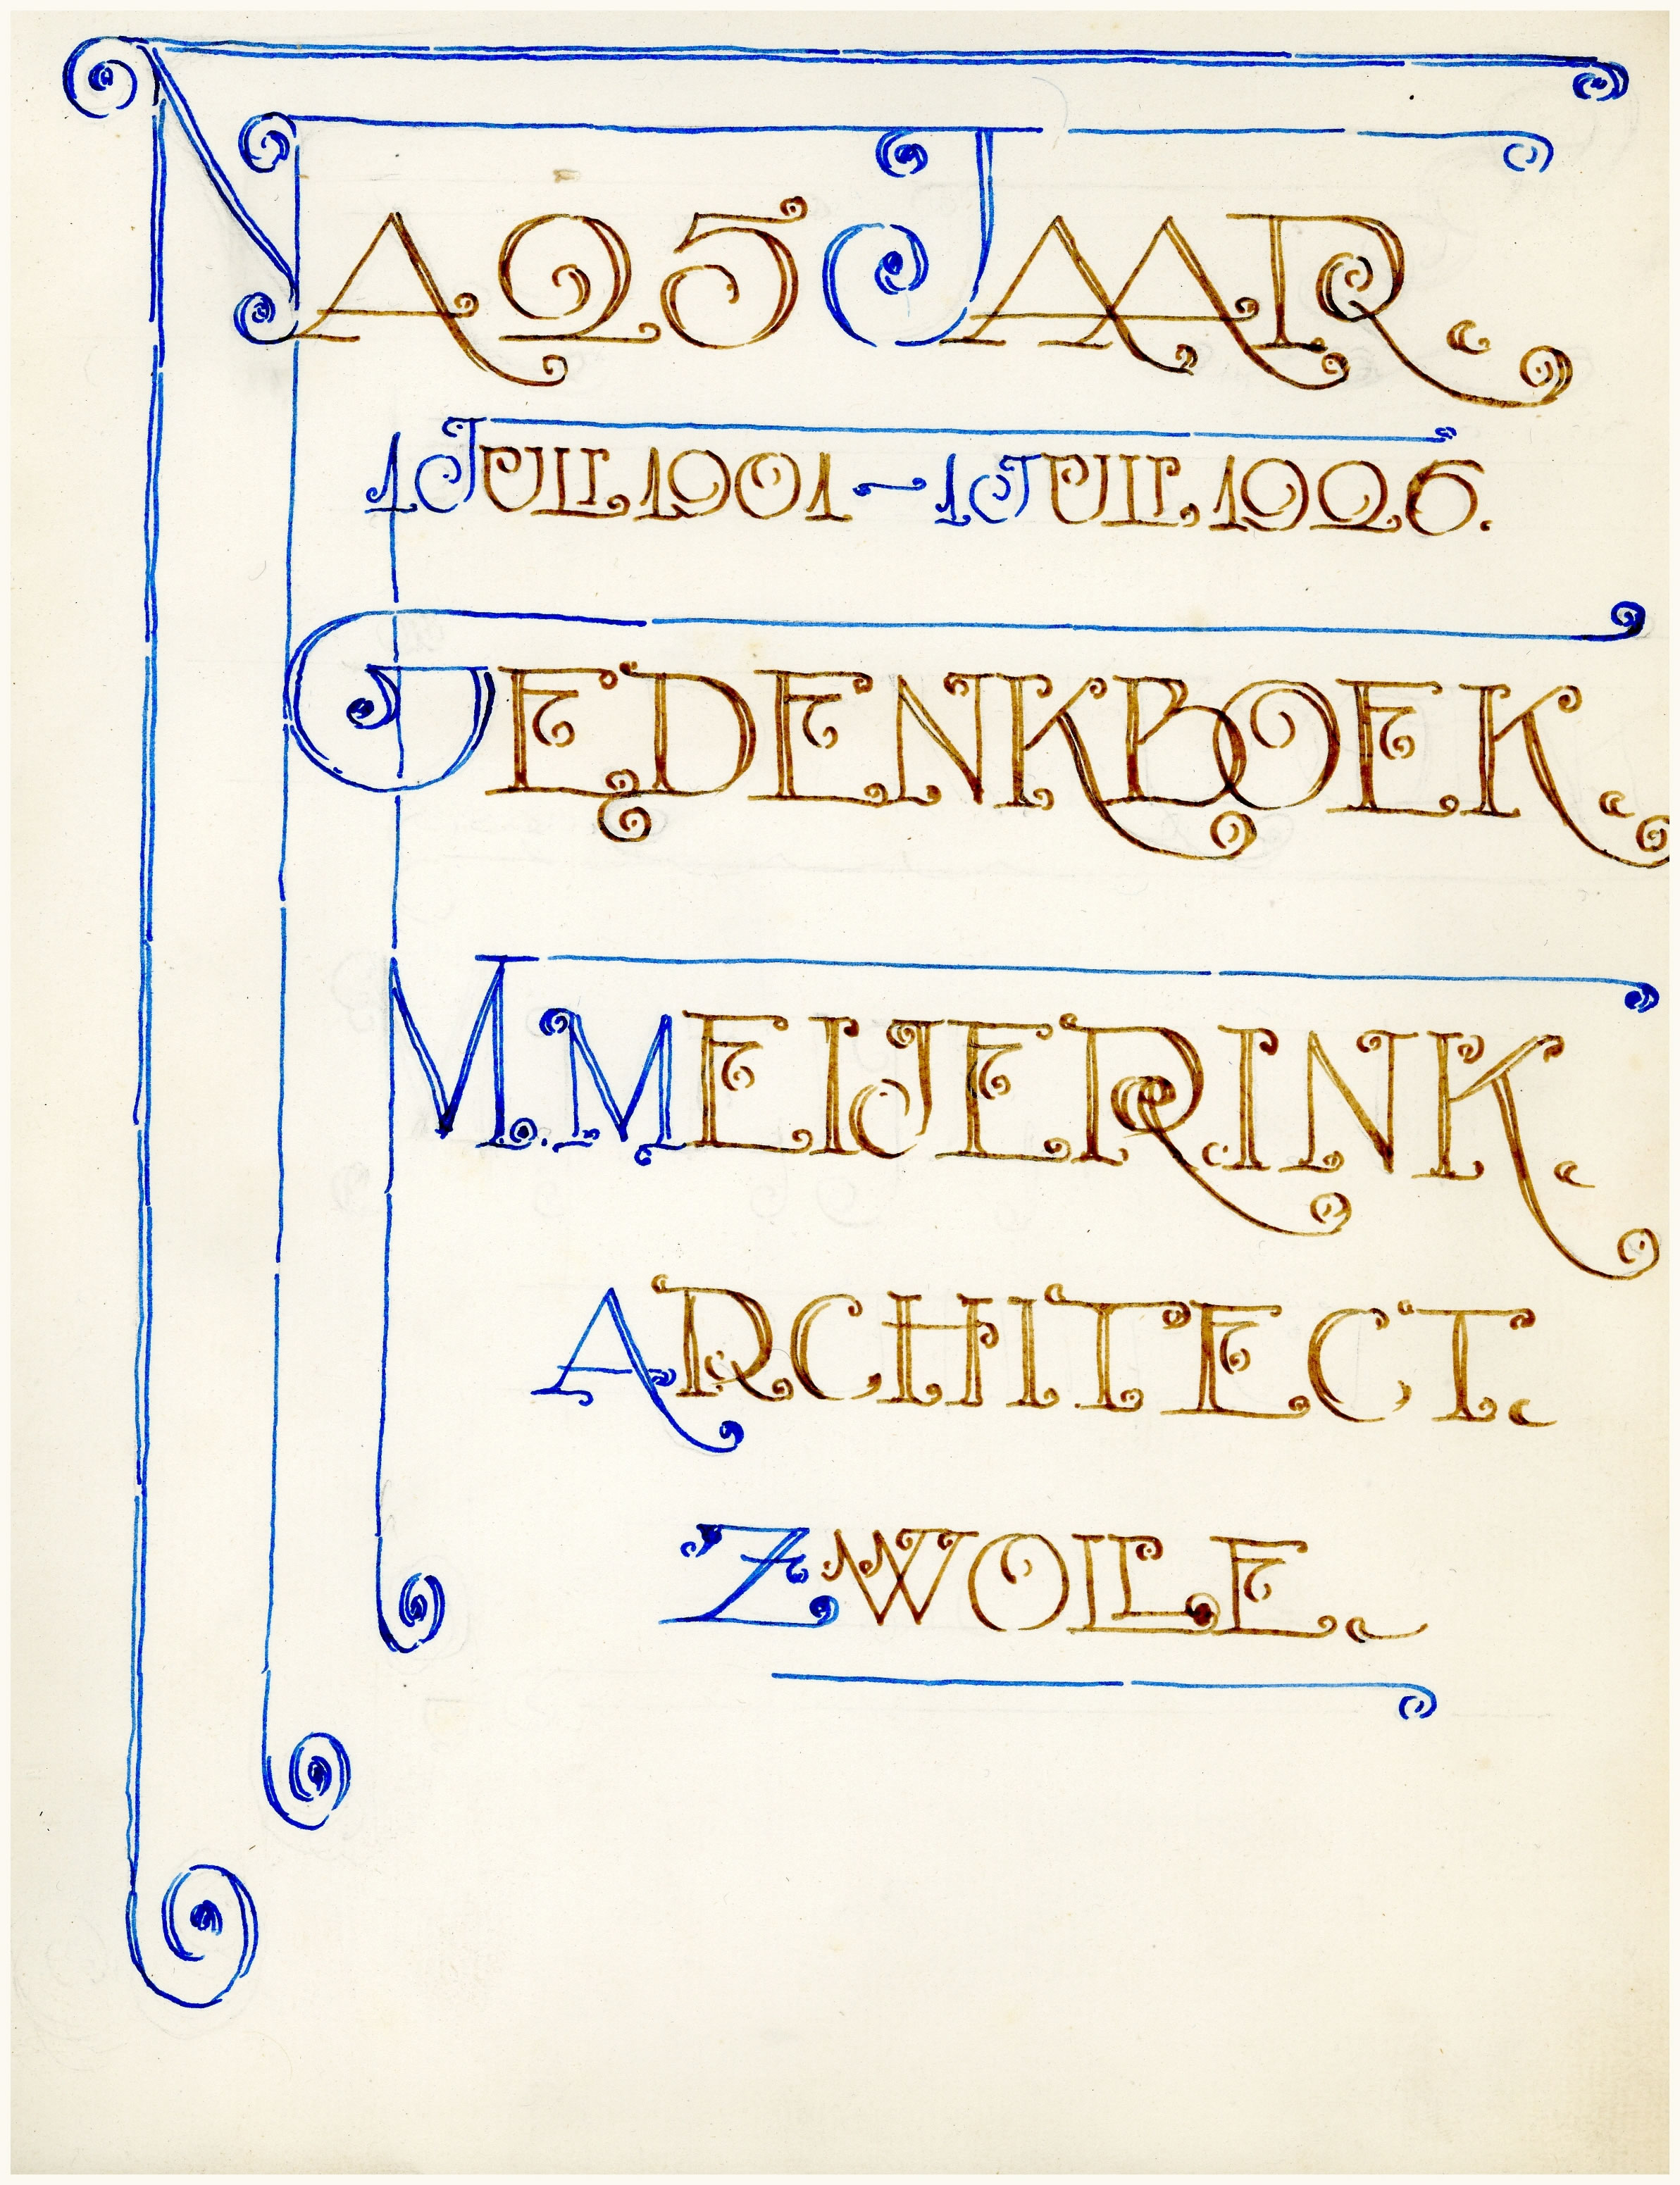 NA 25 JAAR.
1 JULI 1901 - 1 JULI 1926.
GEDENKBOEK.
M. MEIJERINK.
ARCHITECT.
ZWOLLE.